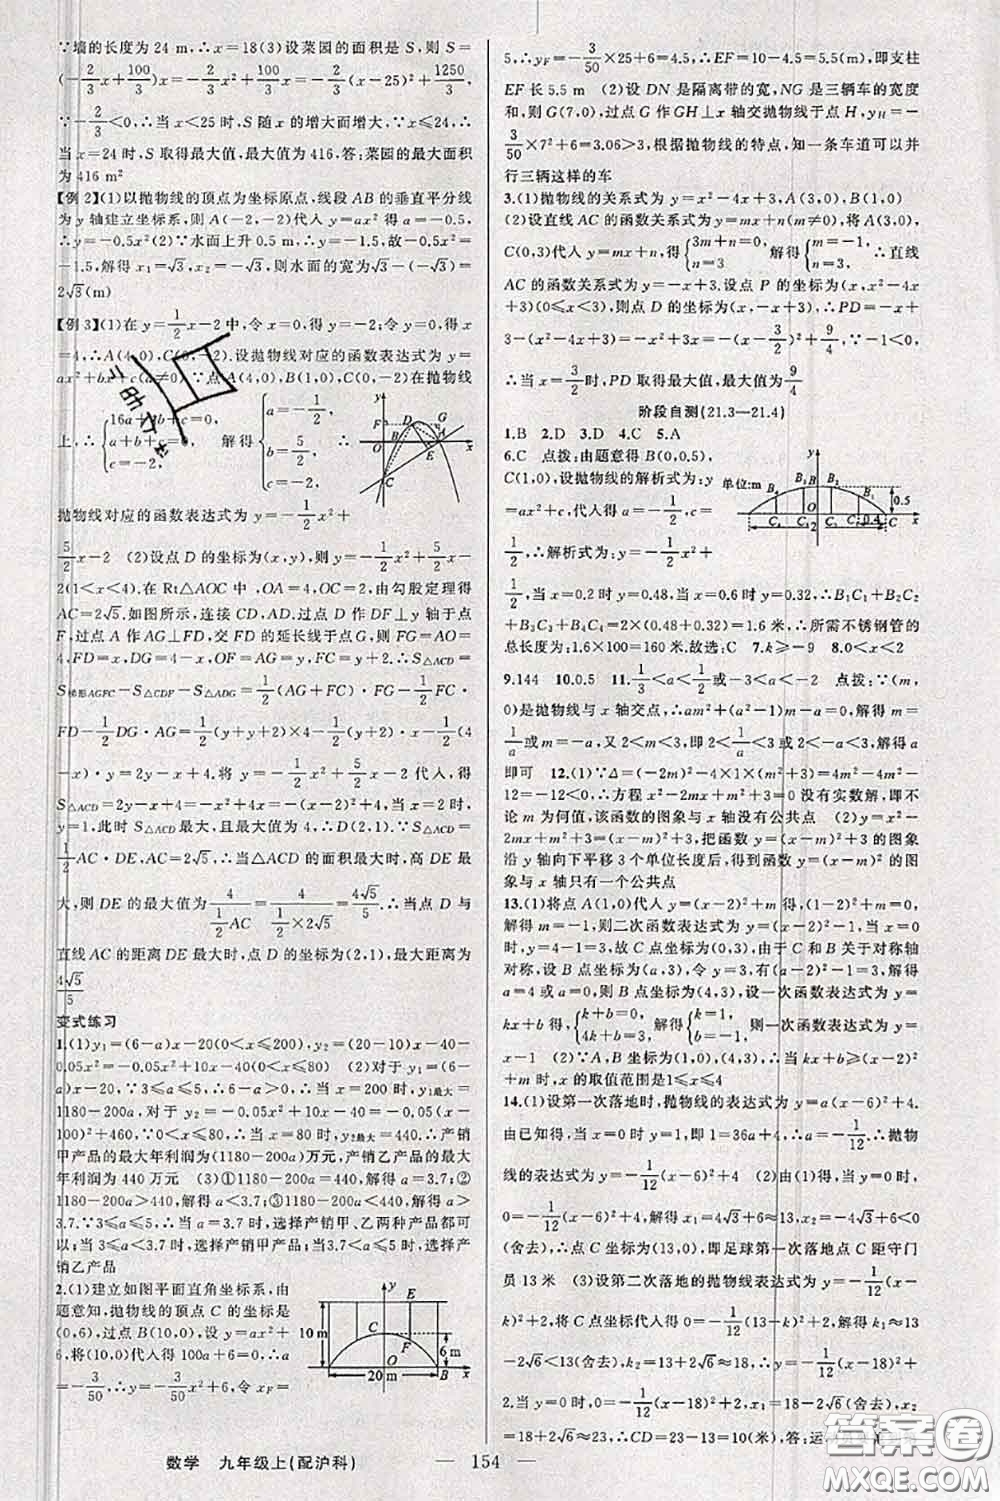 ∵墙的长度为 24 m,∴x=18(3)设菜园的面积是 S,则 S=
(-2/3x+100/3)x=-2/3x²+100/3x=-2/3(x-25)²+1250/3,
∵-2/3<0,∴当 x<25 时,S 随 x 的增大而增大,∵x≤24,∴
当 x=24 时,S 取得最大值,最大值为 416.答:菜园的最大面积
为 416 m²
【例 2】(1)以抛物线的顶点为坐标原点,线段 AB 的垂直平分线
为 y 轴建立坐标系,则 A(-2,-2)代入 y=ax² 得 a=-0.5,
∴y=-0.5x²(2)∵水面上升 0.5 m,∴y=-1.5,故-0.5x²=
-1.5,解得 x₁=√3,x₂=-√3,则水面的宽为√3-(-√3)=
2√3(m)
【例 3】(1)在 y=1/2x-2 中,令 x=0,得 y=-2;令 y=0,得 x
=4,∴A(4,0),C(0,-2).设抛物线对应的函数表达式为 y=
ax²+bx+c(a≠0),∵点 A(4,0),B(1,0),C(0,-2)在抛物线
上,∴{16a+4b+c=0, a+b+c=0, c=-2, 解得 {a=-1/2, b=5/2, c=-2, ∴
抛物线对应的函数表达式为 y=-1/2x²+
5/2x-2 (2)设点 D 的坐标为(x,y),则 y=-1/2x²+5/2x-
2(1<x<4).在 Rt△AOC 中,OA=4,OC=2,由勾股定理得
AC=2√5.如图所示,连接 CD,AD,过点 D 作 DF⊥y 轴于点
F,过点 A 作 AG⊥FD,交 FD 的延长线于点 G,则 FG=AO=
4,FD=x,DG=4-x,OF=AG=y,FC=y+2.∴S△ACD=
S梯形AGFC-S△CDF-S△ADG=1/2(AG+FC)·FG-1/2FC·
FD-1/2DG·AG=1/2(y+y+2)×4-1/2(y+2)·x-1/2(4
-x)·y=2y-x+4.将 y=-1/2x²+5/2x-2 代入,得
S△ACD=2y-x+4=-x²+4x=-(x-2)²+4,∴当 x=2 时,
y=1,此时 S△ACD最大,且最大值为 4,∴D(2,1).∵S△ACD=
1/2AC·DE,AC=2√5,∴当△ACD 的面积最大时,高 DE 最
大,则 DE 的最大值为 4/(1/2AC)=4/(1/2×2√5)=4√5/5.∴当点 D 与
直线 AC 的距离 DE 最大时,点 D 的坐标为(2,1),最大距离为
4√5/5
变式练习
1.(1)y₁=(6-a)x-20(0<x≤200),y₂=(20-10)x-40-
0.05x²=-0.05x²+10x-40(0<x≤80) (2)对于 y₁=(6-
a)x-20,∵3≤a≤5,∴6-a>0,∴当 x=200 时,y₁最大=
1180-200a,对于 y₂=-0.05x²+10x-40=-0.05(x-
100)²+460,∵0<x≤80,∴当 x=80 时,y₂最大=440.∴产销
甲产品的最大年利润为(1180-200a)万元,产销乙产品的最大
年利润为 440 万元 (3)①1180-200a>440,解得 a<3.7;②
1180-200a=440,解得 a=3.7;③1180-200a<440,解得 a>
3.7.∵3≤a≤5,∴当 a=3.7 时,选择产销甲、乙两种产品都可
以;当 3≤a<3.7 时,选择产销甲产品;当 3.7<a≤5 时,选择产
销乙产品
2.(1)建立如图平面直角坐标系,由
题意知,抛物线的顶点 C 的坐标是
(0,6),过点 B(10,0),设 y=ax²+
6,将(10,0)代入得 100a+6=0,∴a
=-3/50,∴y=-3/50x²+6,令 xF=
10 m
6 m
20 m
5,∴yF=-3/50×25+6=4.5,∴EF=10-4.5=5.5(m),即支柱
EF 长 5.5 m (2)设 DN 是隔离带的宽,NG 是三辆车的宽度
和,则 G(7,0),过点 G 作 GH⊥x 轴交抛物线于点 H,yH=-
3/50×7²+6=3.06>3,根据抛物线的特点,知一条车道可以并
行三辆这样的车
3.(1)抛物线的关系式为 y=x²-4x+3,A(3,0),B(1,0)
(2)设直线 AC 的函数关系式为 y=mx+n(m≠0),将 A(3,0),
C(0,3)代入 y=mx+n,得{3m+n=0, n=3 解得{m=-1, n=3, ∴直线
AC 的函数关系式为 y=-x+3.设点 P 的坐标为(x,x²-4x
+3)(0≤x≤3),则点 D 的坐标为(x,-x+3),∴PD=-x+
3-(x²-4x+3)=-x²+3x=-(x-3/2)²+9/4,∵-1<0,
∴当 x=3/2时,PD 取得最大值,最大值为9/4
阶段自测(21.3—21.4)
1.B 2.D 3.D 4.C 5.A
6.C 点拨:由题意得 B(0,0.5),
C(1,0),设抛物线的解析式为:y
=ax²+c,代入得 a=-1/2,c=
单位:m
1/2,∴解析式为:y=-1/2x²+
1/2,当 x=0.2 时 y=0.48,当 x=0.6 时 y=0.32,∴B₁C₁+B₂C₂
+B₃C₃+B₄C₄=2×(0.48+0.32)=1.6 米,∴所需不锈钢管的
总长度为:1.6×100=160 米.故选:C 7.k≥-9 8.0<x<2
9.144 10.0.5 11.1/3<a<1/2或-3<a<-2 点拨:∵(m,
0)是抛物线与 x 轴交点,∴am²+(a²-1)m-a=0,解得 m=
1/a或 m=-a,又 2<m<3,即 2<1/a<3 或 2<-a<3,解得 a
即可 12.(1)∵Δ=(-2m)²-4×1×(m²+3)=4m²-4m²-
12=-12<0,∴方程 x²-2mx+m²+3=0 没有实数解,即不
论 m 为何值,该函数的图象与 x 轴没有公共点 (2)y=x²-
2mx+m²+3=(x-m)²+3,把函数 y=(x-m)²+3 的图象
沿 y 轴向下平移 3 个单位长度后,得到函数 y=(x-m)² 的图
象与 x 轴只有一个公共点
13.(1)将点 A(1,0)代入 y=(x-2)²+m 得,(1-2)²+m=0,
解得 m=-1,则二次函数表达式为 y=(x-2)²-1.当 x=0
时,y=4-1=3,故 C 点坐标为(0,3),由于 C 和 B 关于对称轴
对称,设 B 点坐标为(a,3),令 y=3,有(a-2)²-1=3,解得
a=4 或 a=0,则 B 点坐标为(4,3),设一次函数表达式为 y=
kx+b 得,{k+b=0, 4k+b=3, 解得{k=1, b=-1, 则一次函数表达式为 y=
x-1 (2)∵A,B 坐标为(1,0),(4,3),∴当 kx+b≥(x-2)²+
m 时,x 的取值范围是 1≤x≤4
14.(1)设第一次落地时,抛物线的表达式为 y=a(x-6)²+4,
由已知得,当 x=0 时 y=1,即 1=36a+4,∴a=-1/12,∴抛物
线的表达式为 y=-1/12(x-6)²+4 (2)由(1)得,当 y=0 时,
0=-1/12(x-6)²+4,解得 x=4√3+6≈13,x=-4√3+6<0
(舍去),∴点 C 坐标为(13,0),即足球第一次落地点 C 距守门
员 13 米 (3)设第二次落地的抛物线表达式为 y=-1/12(x-
k)²+2,将 C 点坐标代入得 0=-1/12(13-k)²+2,解得 k₁=13
-2√6<13(舍去),k₂=13+2√6≈18,∴y=-1/12(x-18)²+
2,当 y=0 时,0=-1/12(x-18)²+2,x₁=18-2√6(舍去),x₂
=18+2√6
数学 九年级上(配沪科) — 154 —
答案圈
MXQE.COM